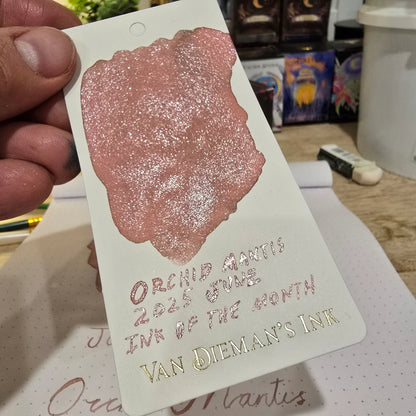 ORCHID MANTIS
2025 JUNE
INK OF THE MONTH
VAN DIEMAN'S INK
Orchid Mantis